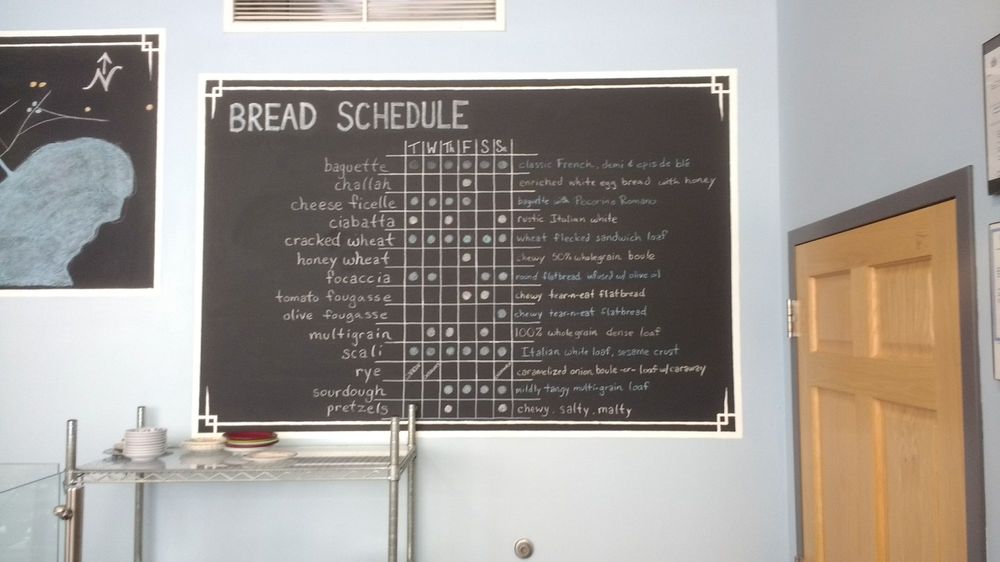 N
BREAD SCHEDULE
T W Th F S Su
baguette classic French, demi & epis de blé
challah enriched white egg bread with honey
cheese ficelle baguette with Pecorino Romano
ciabatta rustic Italian white
cracked wheat wheat flecked sandwich loaf
honey wheat chewy 50% wholegrain boule
focaccia round flatbread infused w/ olive oil
tomato fougasse chewy tear-n-eat flatbread
olive fougasse chewy tear-n-eat flatbread
multigrain 100% wholegrain dense loaf
scali Italian white loaf, sesame crust
rye caramelized onion boule -or- loaf w/caraway
sourdough mildly tangy multi-grain loaf
pretzels chewy. salty. malty